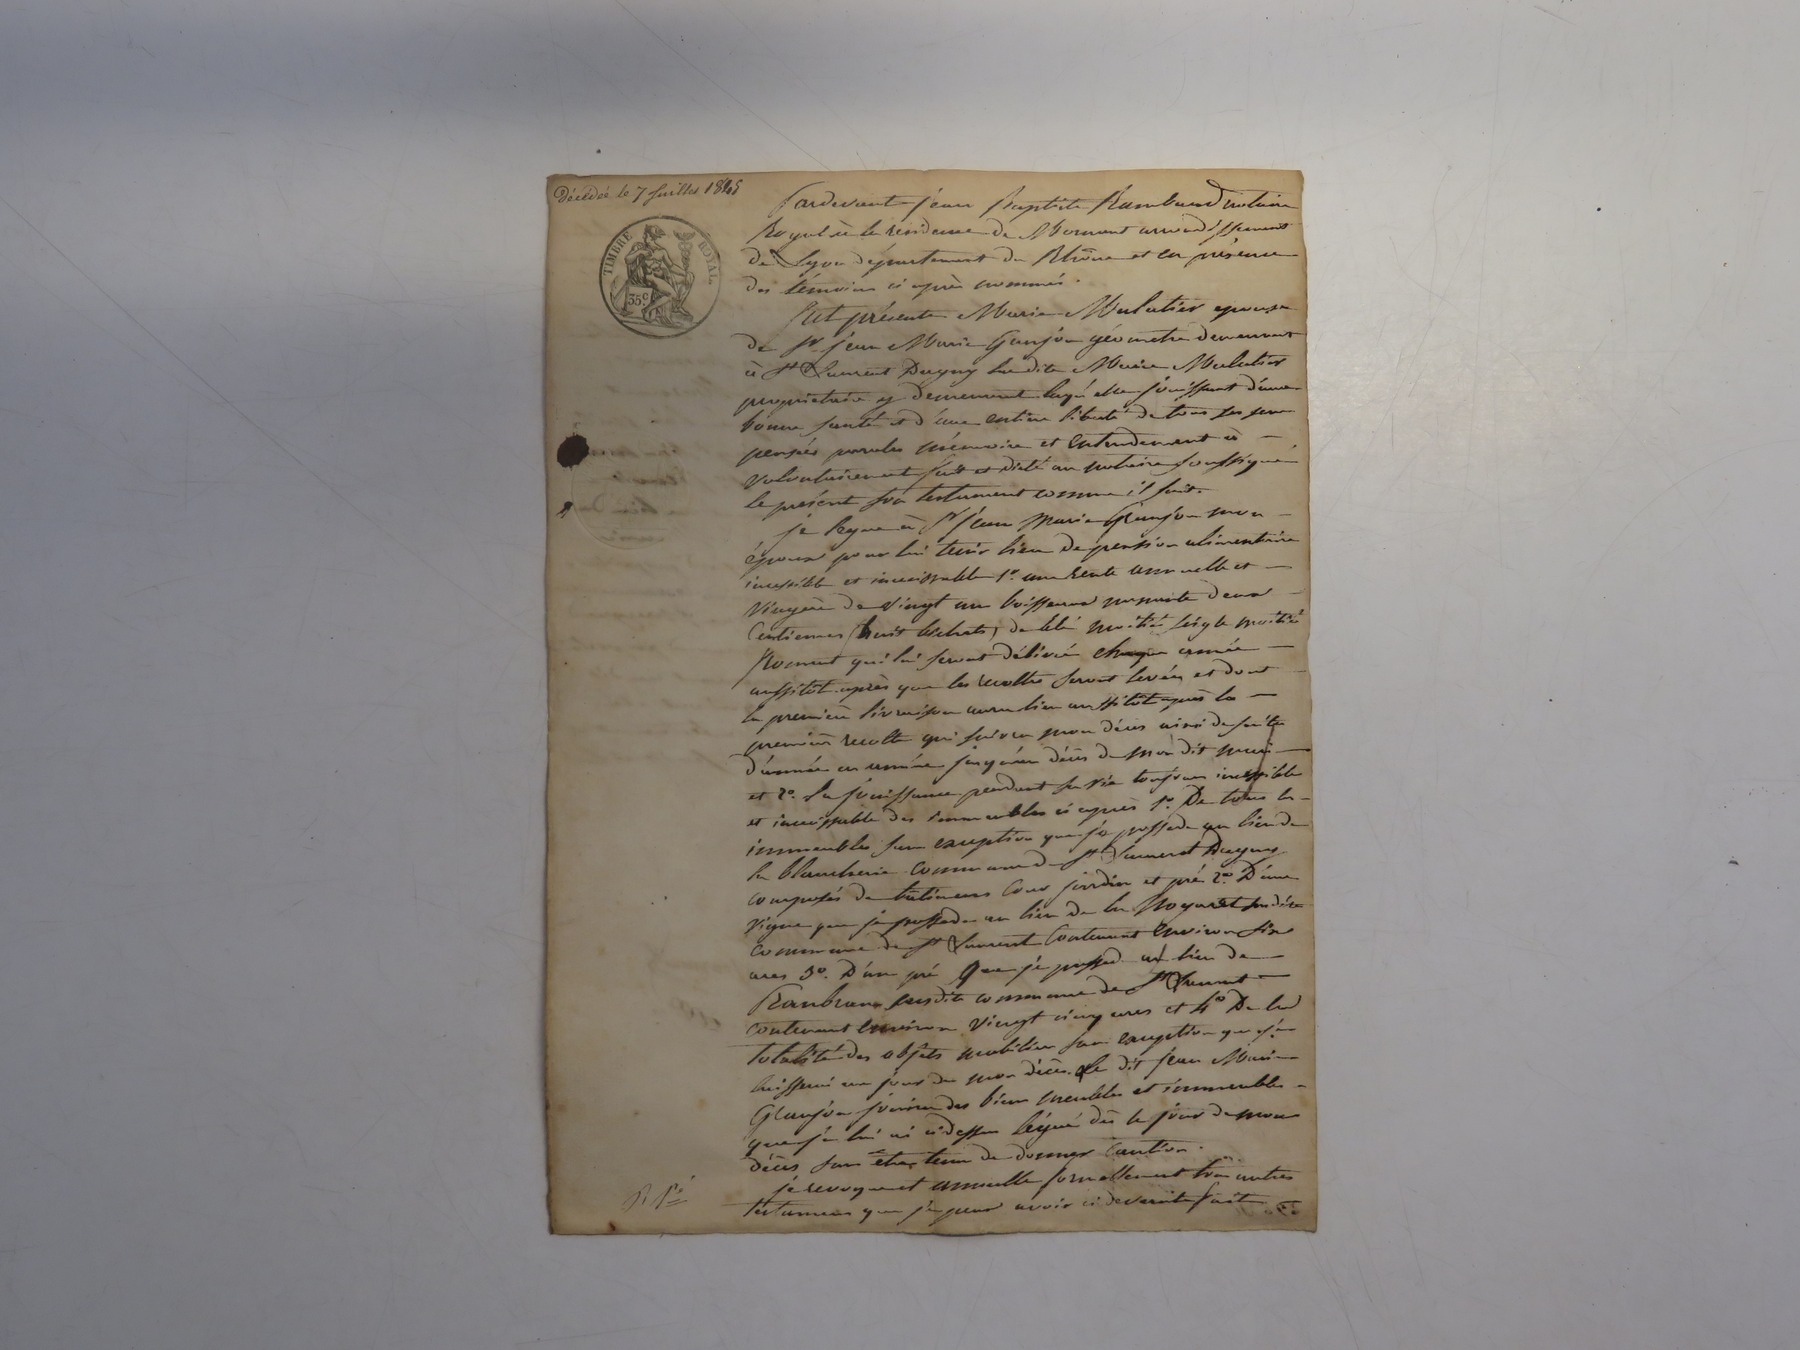 Décédée le 7 Juillet 1845
TIMBRE ROYAL
35c
Pardevant jean Baptiste Rambaud notaire
Royal à la résidence de Mornant arrondissement
de Lyon département du Rhône et en présence
des témoins ci après nommés.
fut présente Marie Mulatier épouse
de Sr. jean Marie Granjon géomètre demeurant
à St Laurent Dagny la dite Marie Mulatier
propriétaire y demeurant laquelle jouissant d'une
bonne santé et d'une entière liberté de tous ses sens
pensées paroles mémoire et entendement a
volontairement fait et dicté au notaire soussigné
le présent son testament comme il suit.
je legue à Sr jean Marie Granjon mon
époux pour lui tenir lieu de pension alimentaire
incessible et insaisissable 1o. une rente annuelle et
viagère de vingt un boisseaux soixante deux
Centiemes (huit bichets) de blé moitié seigle moitié
froment qui lui seront délivrés chaque année
aussitôt après que les recoltes seront levées et dont
la première livraison aura lieu aussitôt après la
première recolte qui suivra mon décès ainsi de suite
d'année en année jusqu'au décès de mon dit mari
et 2o. la jouissance pendant sa vie toujours incessible
et insaisissable des immeubles ci après 1o. De tous les
immeubles sans exception que je possede au lieu de
la blancherie commune de St Laurent Dagny
composés de batimens Cour jardin et pré 2o. D'une
vigne que je possede au lieu de la
commune de St Laurent Contenant environ six
ares 3o. D'un pré que je possede au lieu de
susdite commune de St Laurent
contenant environ vingt cinq ares et 4o De la
totalité des objets mobiliers sans exception que je
laisserai au jour de mon décès. le dit jean Marie
Granjon jouira des biens meubles et immeubles
que je lui ai cidessus légué dès le jour de mon
décès sans être tenu de donner Caution.
je revoque et annulle formellement tous autres
testamens que je peux avoir ci devant fait